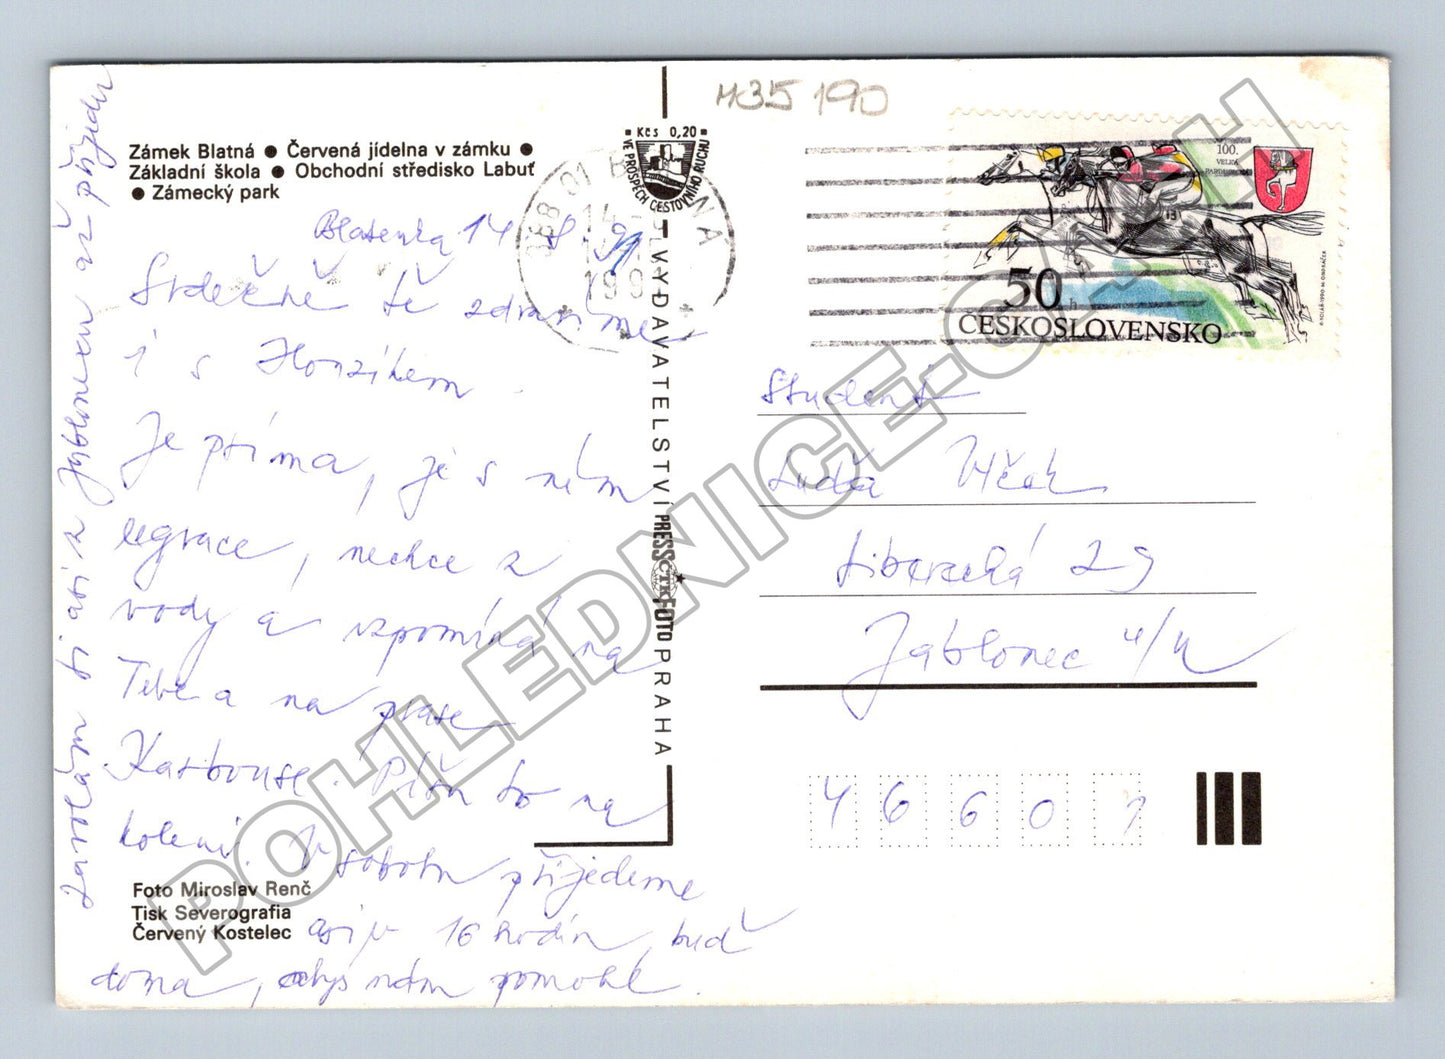 M35 190
Zámek Blatná ● Červená jídelna v zámku ●
Základní škola ● Obchodní středisko Labuť
● Zámecký park
■ Kčs 0,20 ■
VE PROSPĚCH CESTOVNÍHO RUCHU
388 01 BLATNÁ
100.
VELKÁ
PARDUBICKÁ
50 h
ČESKOSLOVENSKO
Blatenka 14. 8. 91
Srdečně tě zdravíme
i s Honzíkem.
Je príma, je s ním
legrace, nechce z
vody a vzpomíná na
Tebe a na
Karbouse. Píšu to na
koleni. V sobotu přijedeme
asi v 16 hodin, buď
doma, abys nám pomohl.
Zavolám ti asi z Jablonexu až přijedu
VYDAVATELSTVÍ PRESSFOTO PRAHA
ČTK
Student
Luďa Vlček
Liberecká 29
Jablonec n/N
466 01
Foto Miroslav Renč
Tisk Severografia
Červený Kostelec
POHLEDNICE-CZ